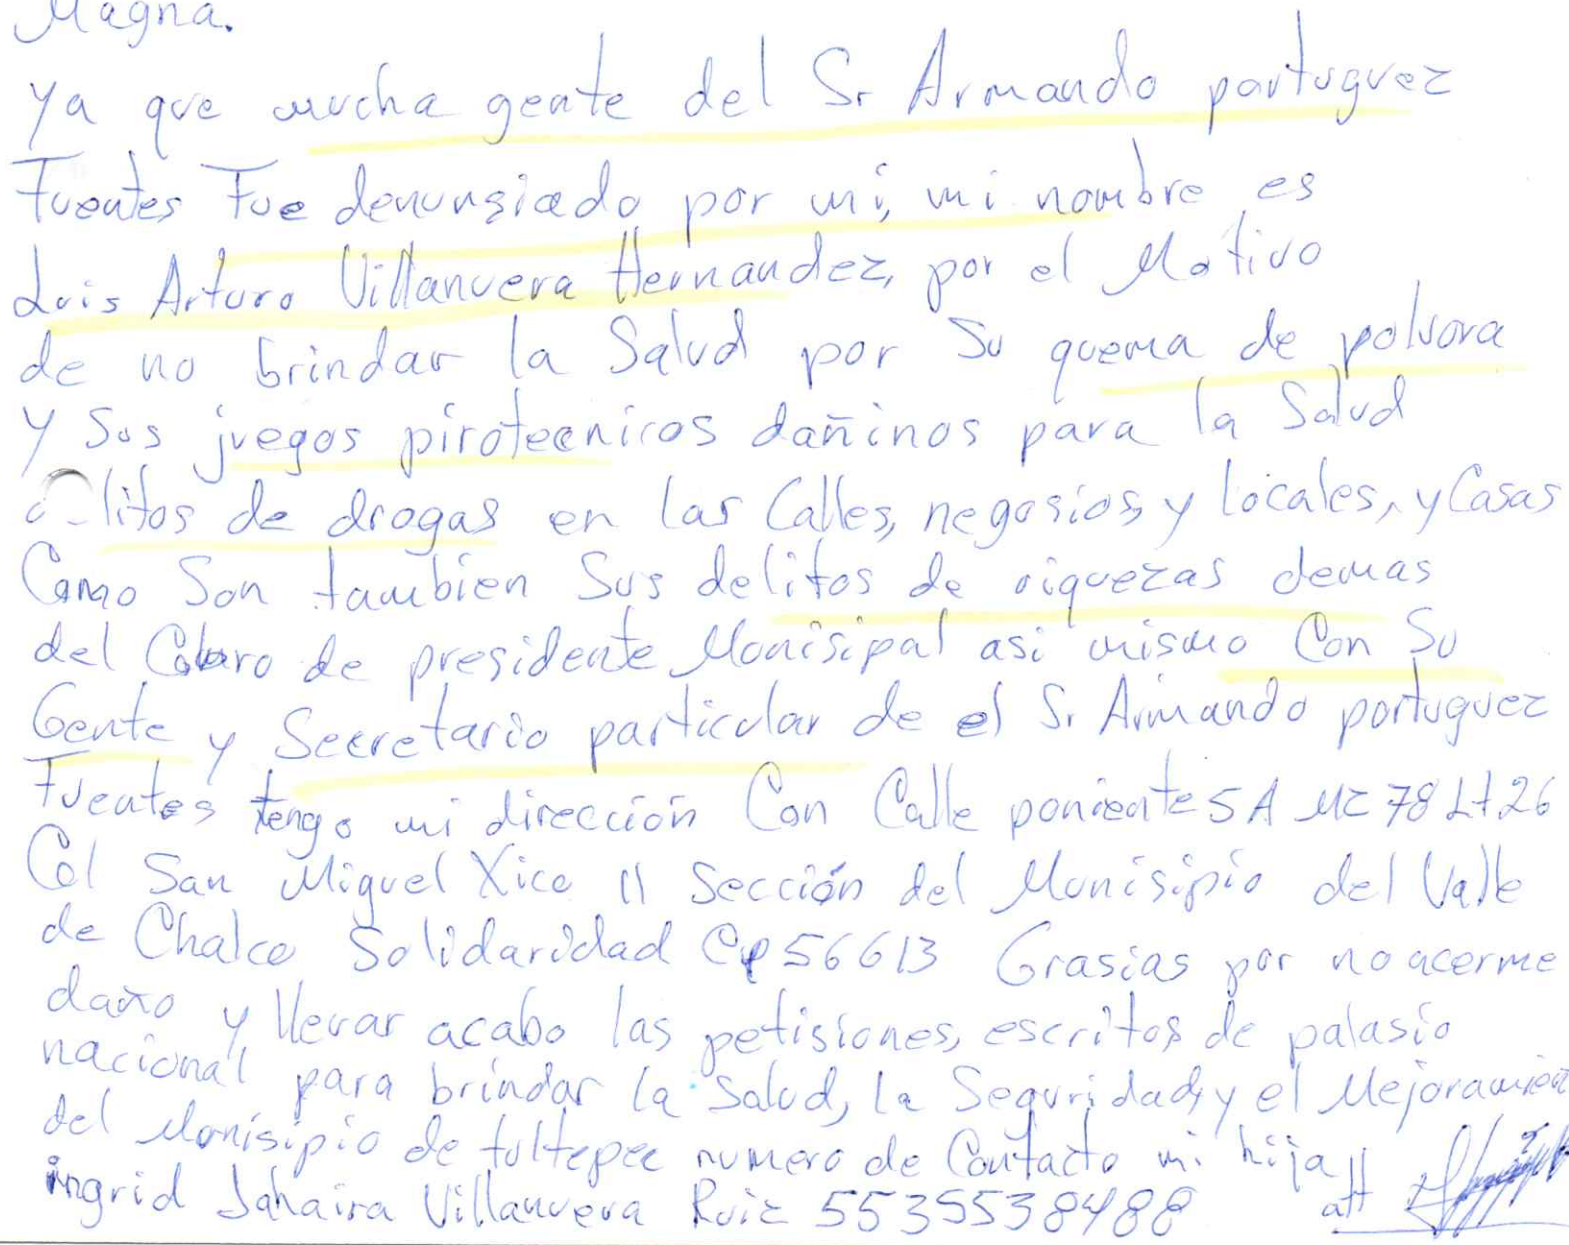 Magna.
ya que mucha gente del Sr Armando portuguez
Fuentes Fue denunsiado por mi, mi nombre es
Luis Arturo Villanueva Hernandez, por el Motivo
de no brindar la Salud por Su quema de polvora
y Sus juegos pirotecnicos dañinos para la Salud
litos de drogas en las Calles, negosios, y locales, y Casas
Como Son tambien Sus delitos de riquezas demas
del Cobro de presidente Monisipal asi mismo Con Su
Gente y Secretario particular de el Sr Armando portuguez
Fuentes tengo mi dirección Con Calle poniente 5A MZ 78 Lt 26
Col San Miguel Xico II Sección del Monisipio del Valle
de Chalco Solidaridad Cp 56613 Grasias por no acerme
daño y llevar acabo las petisiones, escritos de palasio
nacional para brindar la Salud, la Seguridad, y el Mejoramien
del Monisipio de tultepec numero de Contacto mi hija
ingrid Jahaira Villanueva Ruiz 5535538488 att